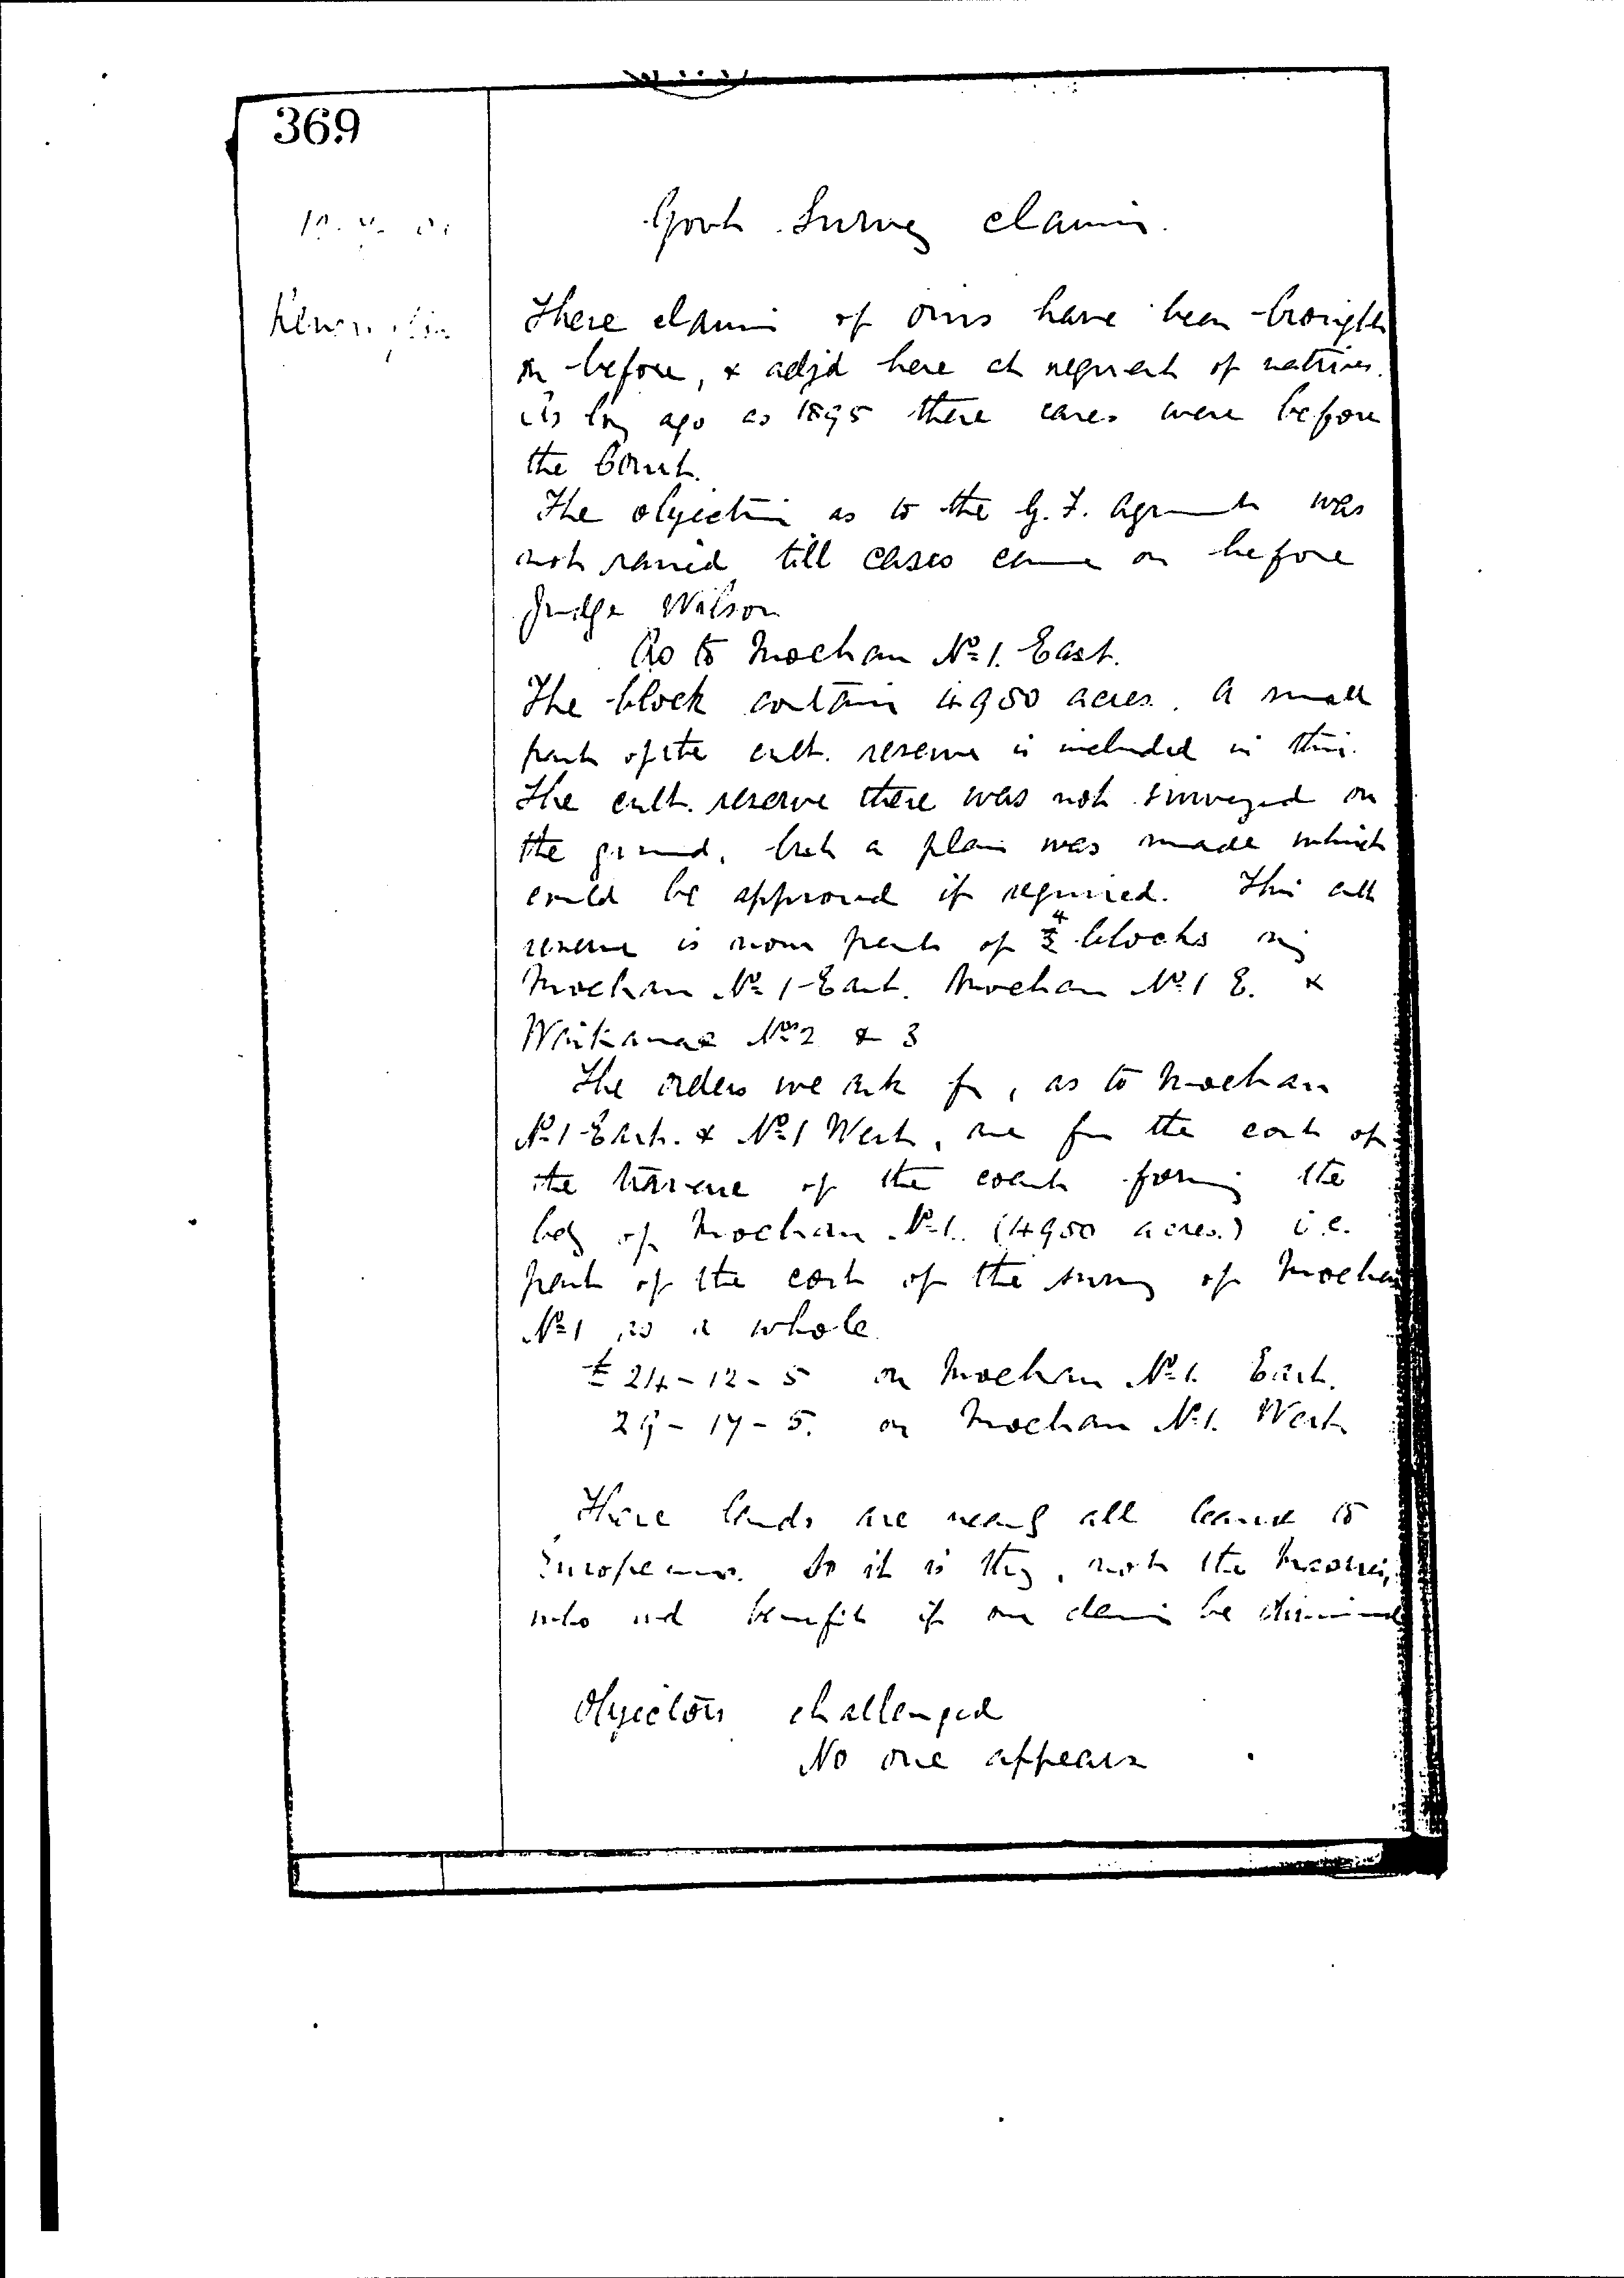 369
Govt Survey claims.
These claims of ours have been brought
on before, & adjd here at request of natives.
As long ago as 1895 these cases were before
the Court.
The objection as to the G. F. Agrmt was
not raised till cases came on before
Judge Wilson
As to Moehau No 1. East.
The block contains 4950 acres. A small
part of the cult. reserve is included in this.
The cult. reserve there was not surveyed on
the ground, but a plan was made which
could be approved if required. This cult
reserve is now part of 4 blocks
Moehau No 1 East. Moehau No 1 E. &
Nos 2 & 3
The orders we ask for, as to Moehau
No 1 East. & No 1 West, are for the cost of
the traverse of the coast forming the
bdy of Moehau No 1. (4950 acres.) i.e.
part of the cost of the survey of Moehau
No 1 as a whole
£ 24-12-5 on Moehau No 1. East.
on Moehau No 1. West
These lands are nearly all leased to
Europeans. So it is they, not the Maoris,
who wd benefit if our claim be dismissed
Objectors challenged
No one appears